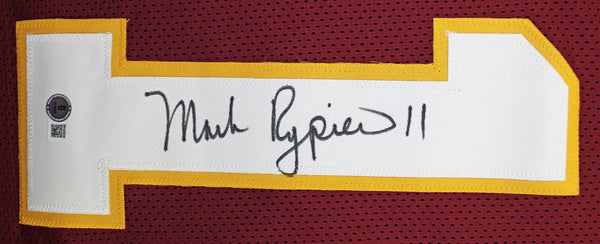 Mark Rypien 11